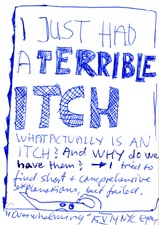 I JUST HAD
A TERRIBLE
ITCH
WHAT ACTUALLY IS AN
ITCH? And WHY do we
have them? → I tried to
find short + comprehensive
explanations, but failed.
"Overwhelming" 15 V 14 NYC